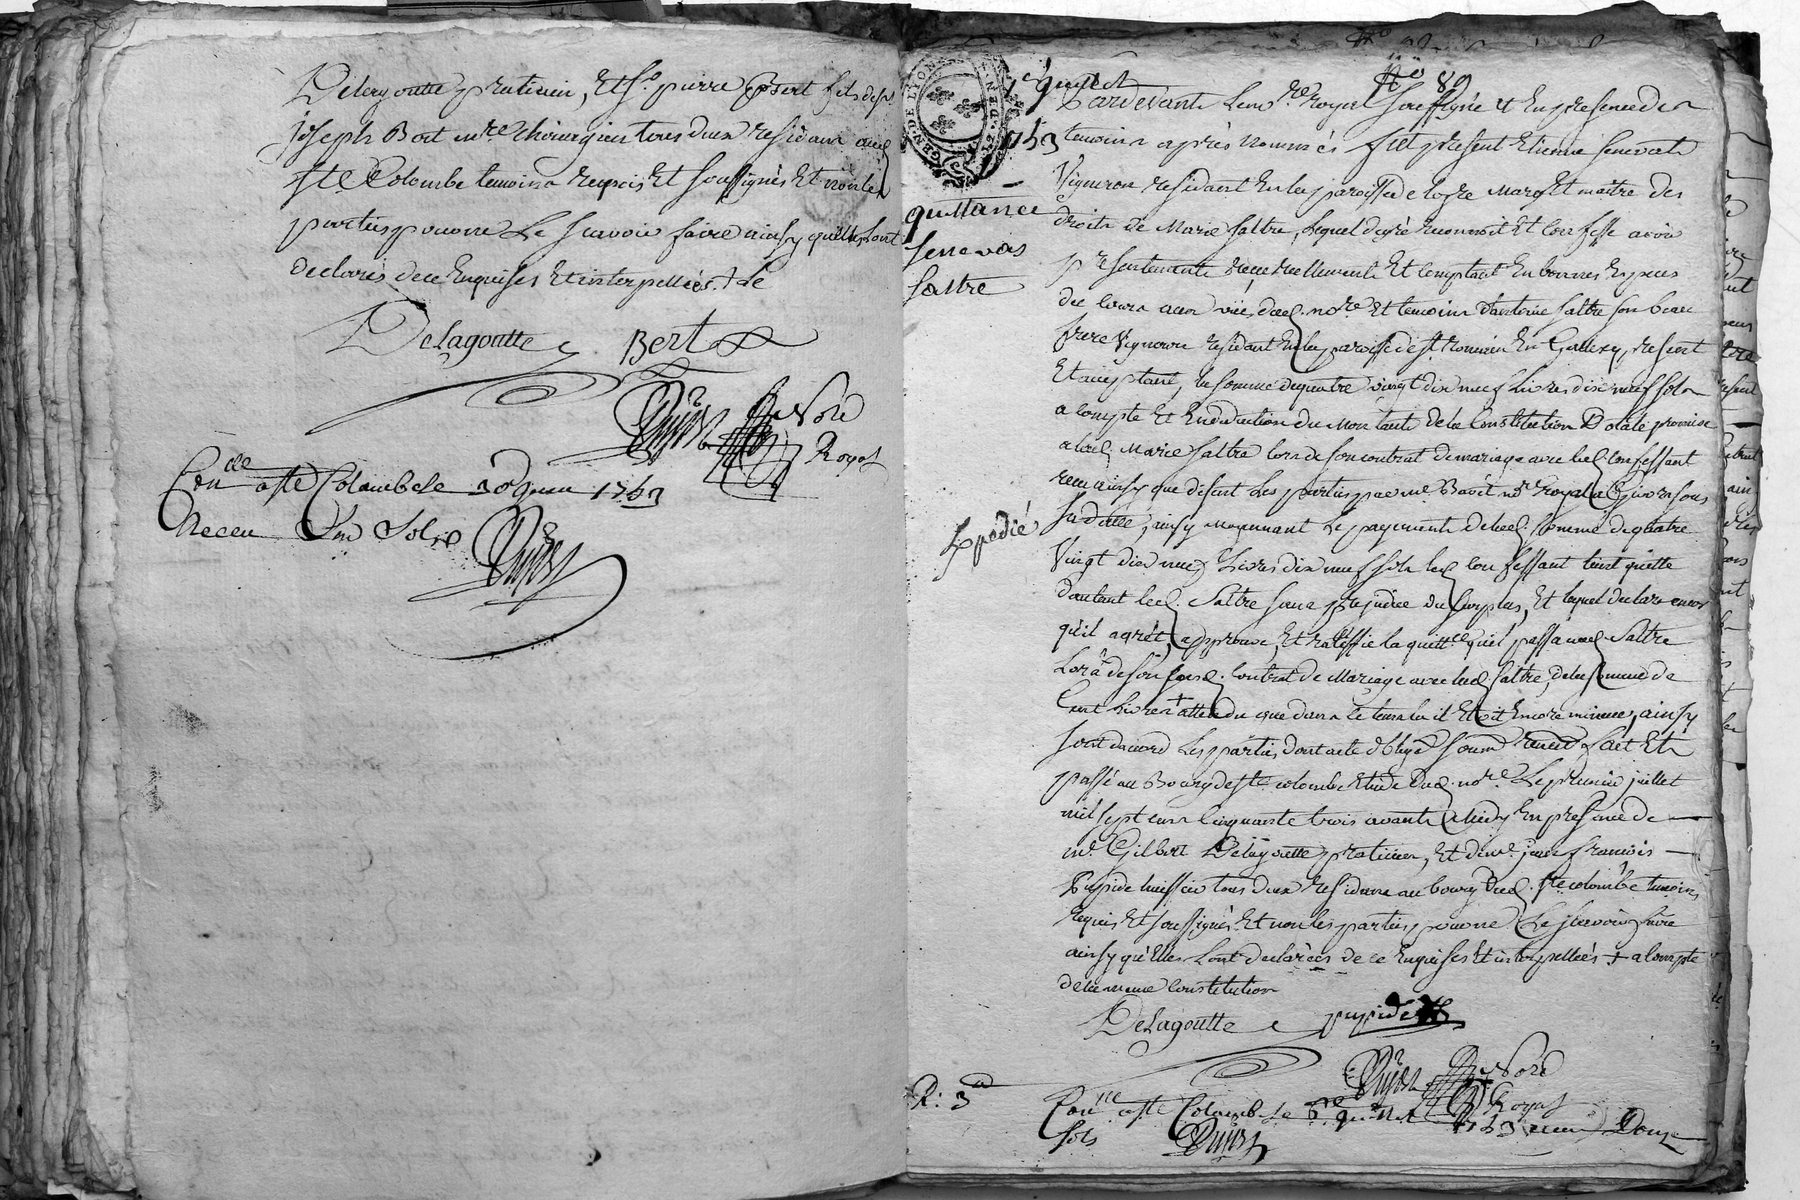 Delagoutte praticien, Et Sr. pierre Bert fils de Sr.
joseph Bert mtre chirurgien tous deux residant aud.
Ste Colombe temoins requis Et soussignés Et non les
parties pour ne Le scavoir faire ainsy qu'elles ont
declarés de ce Enquises Et interpellées
Delagoutte Bert
Nore
Royal
Con.lle a Ste Colombe le 30 juin 1753
Receu Sols
GEN. DE LYON
Nº 89
1er juillet
1753
quittance
senevas
sattre
Expedié
Pardevant Le nore royal soussigné Et En presence des
temoins après nommés fut present Etienne senevas
Vigneron residant En la paroisse de Mary Et maitre des
droits de Marie sattre, Lequel de gré reconnoit Et confesse avoir
presentement reellement Et comptant En bonnes Especes
du cours aux vües dud. nore Et temoins d'antoine sattre son beau
frere Vigneron residant En la paroisse de st Romain En Gal present
Et acceptant, la somme de quatre vingt dix neuf Livres dix neuf sols
a compte Et En deduction du Montant de la Constitution Dotale promise
a lad. Marie sattre lors de son contrat de mariage avec led. Confessant
receu ainsy que disent Les parties par me nore royal a Givors sous
sa datte, ainsy moyennant Le payement de lad. somme de quatre
Vingt dix neuf Livres dix neuf sols led. Confessant tient quitte
d'autant led. Sattre sans prejudice du surplus, Et lequel declare encor
qu'il agrée, approuve, Et ratiffie la quittce qu'il passa aud. Sattre
Lors de son susd. Contrat de Mariage avec lad. sattre, de la somme de
Cent Livres + attendu que dans le tems la il Etoit Encore mineur, ainsy
sont d'accord Les parties dont acte oblige soum renon fait Et
passé au Bourg de Ste colombe Etude dud. nore Le premier juillet
mil sept cens cinquante trois avant midy En presence de
me Gilbert Delagoutte praticien, Et de me jean francois
Pupide huissier tous deux residans au bourg dud. Ste colombe temoins
requis Et soussignés Et non les parties pour ne Le scavoir faire
ainsy qu'elles Lont declarées de ce Enquises Et interpellées + a compte
de la meme constitution
Delagoutte pupide
Nore
Royal
R: 3
Con.lle a Ste Colombe Le juillet 1753 receu Douze
sols